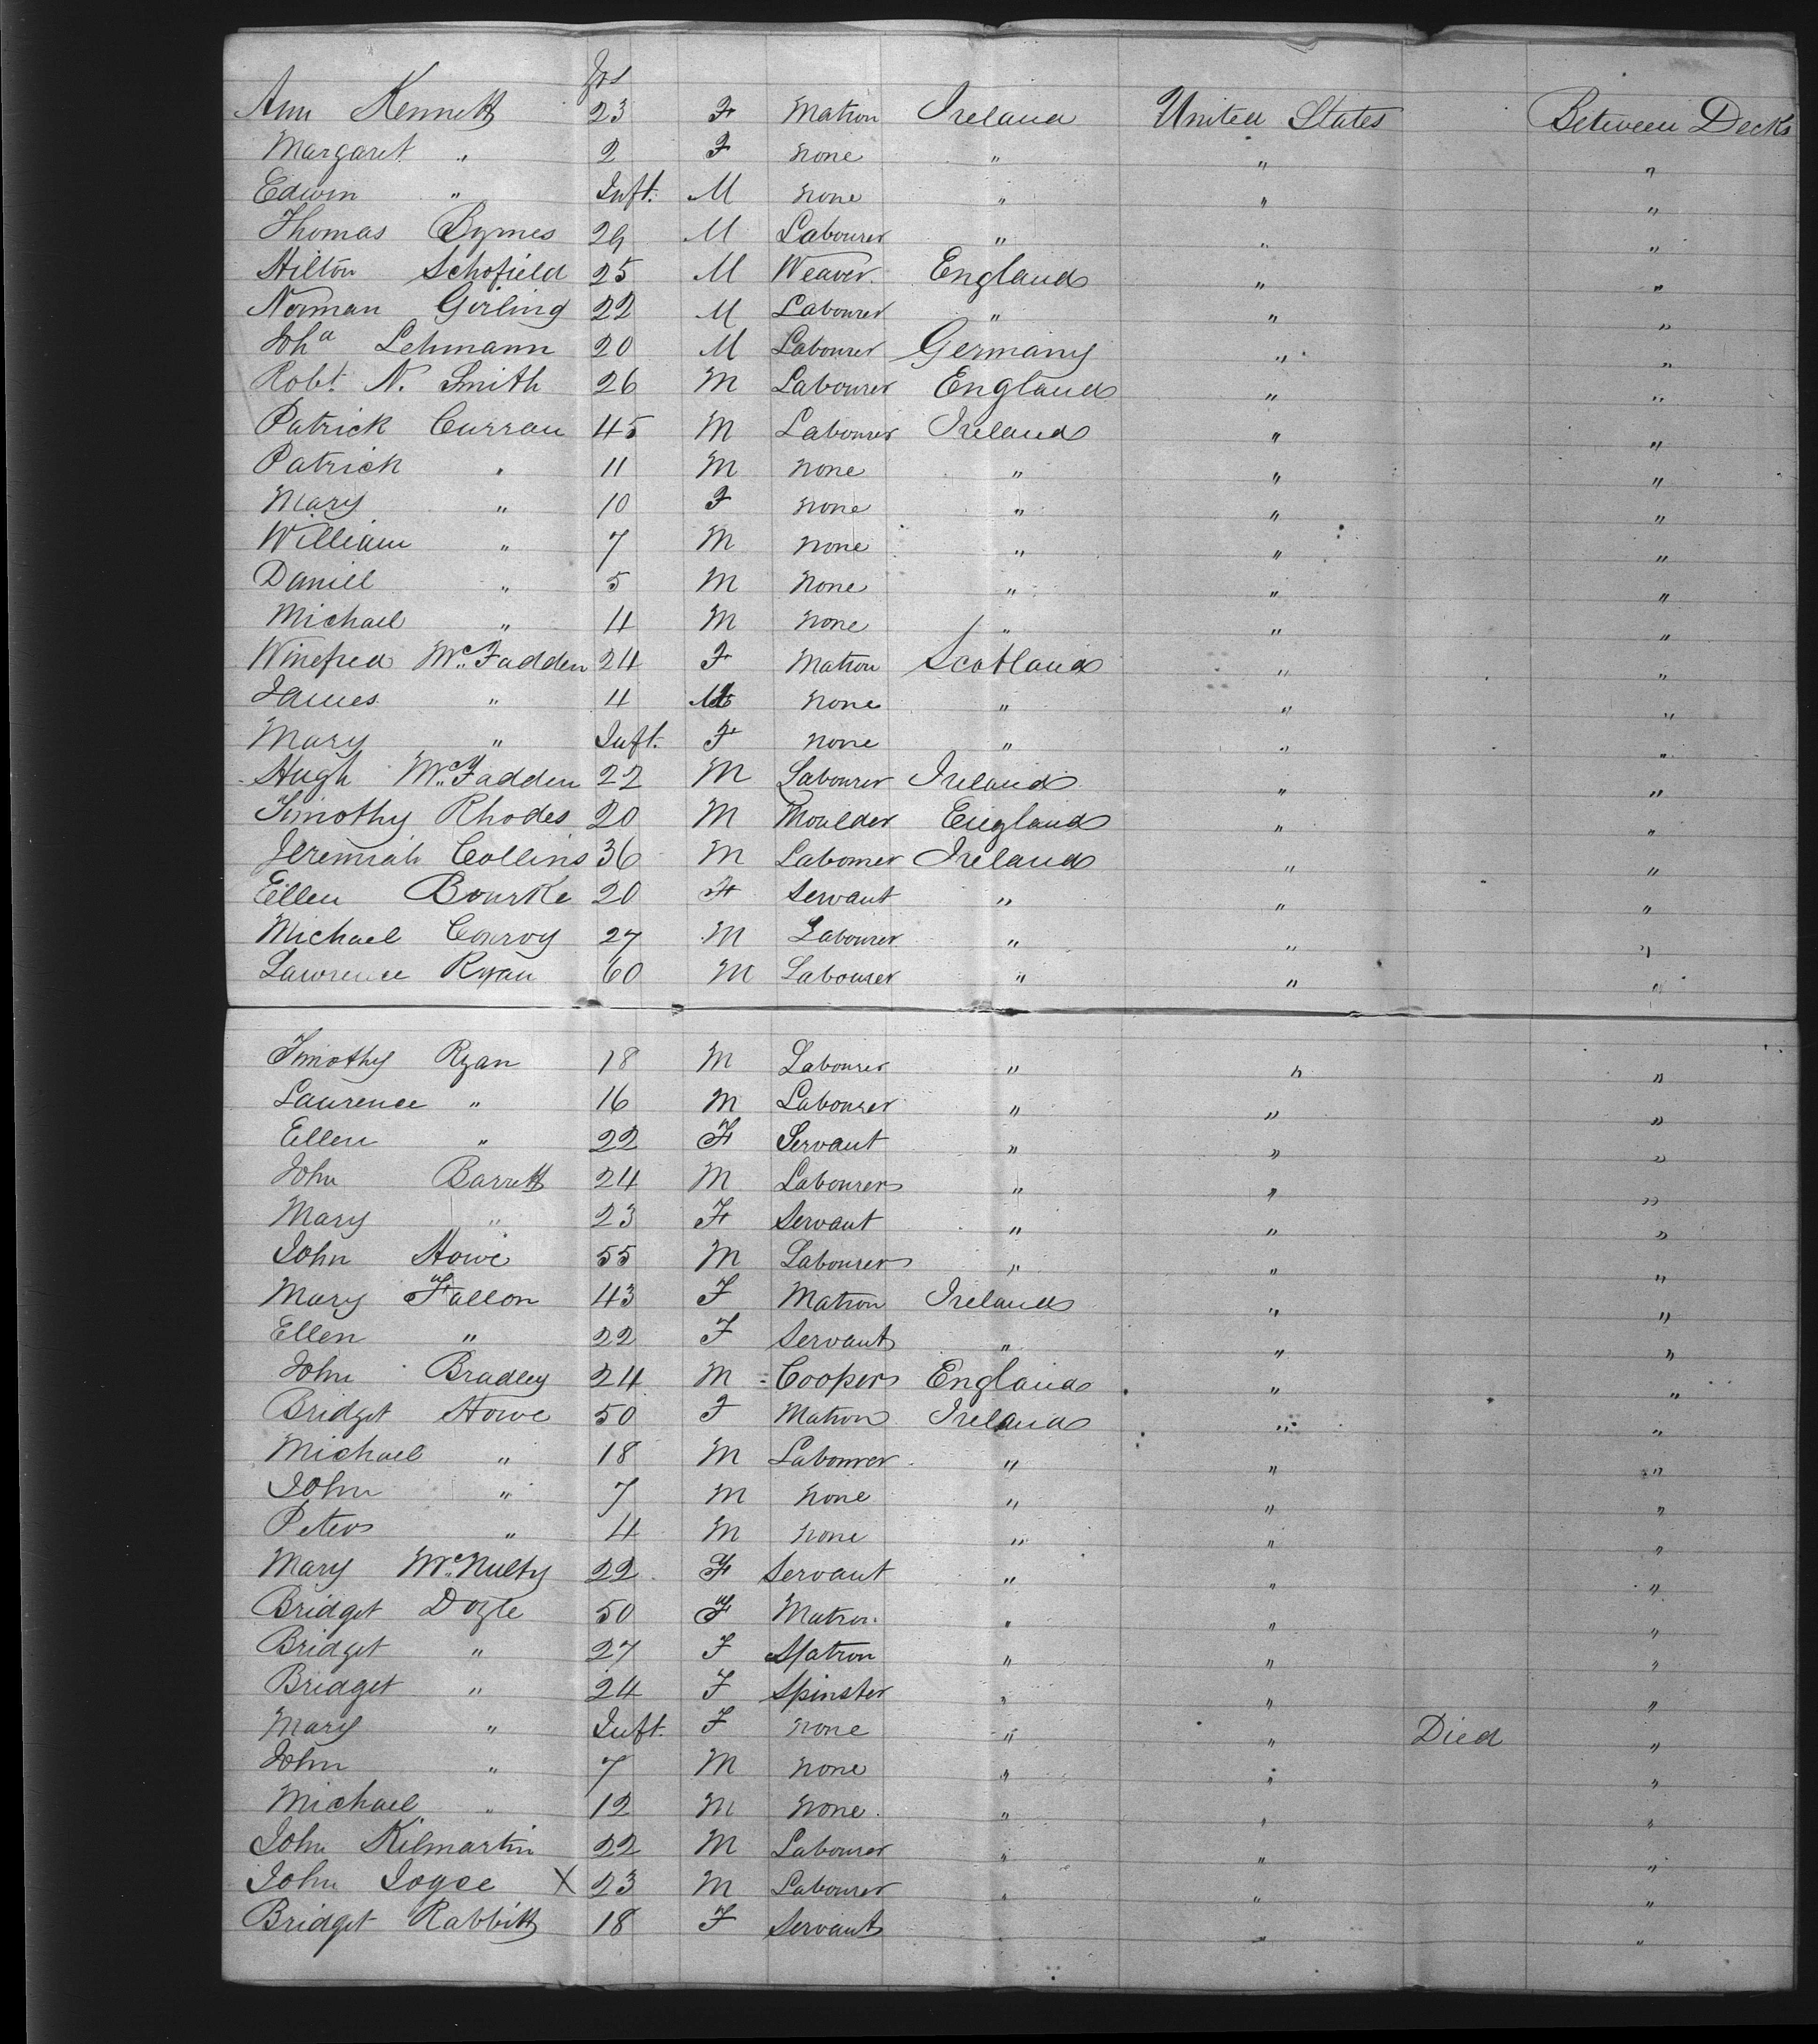 Yrs
Ann Kennett 23 F Matron Ireland United States Between Decks
Margaret " 2 F None " " "
Edwin " Inft. M None " " "
Thomas Byrnes 29 M Labourer " " "
Hilton Schofield 25 M Weaver England " "
Norman Girling 22 M Labourer " " "
Joha Lehmann 20 M Labourer Germany " "
Robt. N. Smith 26 M Labourer England " "
Patrick Curran 45 M Labourer Ireland " "
Patrick " 11 M None " " "
Mary " 10 F None " " "
William " 7 M None " " "
Daniel " 5 M None " " "
Michael " 4 M None " " "
Winefred McFadden 24 F Matron Scotland " "
James " 4 M None " " "
Mary " Inft. F None " " "
Hugh McFadden 22 M Labourer Ireland " "
Timothy Rhodes 20 M Moulder England " "
Jeremiah Collins 36 M Labourer Ireland " "
Ellen Bourke 20 F Servant " " "
Michael Conroy 27 M Labourer " " "
Lawrence Ryan 60 M Labourer " " "
Timothy Ryan 18 M Labourer " " "
Laurence " 16 M Labourer " " "
Ellen " 22 F Servant " " "
John Barrett 24 M Labourer " " "
Mary " 23 F Servant " " "
John Howe 55 M Labourer " " "
Mary Fallon 43 F Matron Ireland " "
Ellen " 22 F Servant " " "
John Bradley 24 M Cooper England " "
Bridget Howe 50 F Matron Ireland " "
Michael " 18 M Labourer " " "
John " 7 M None " " "
Peter " 4 M None " " "
Mary McNulty 22 F Servant " " "
Bridget Doyle 50 F Matron " " "
Bridget " 27 F Matron " " "
Bridget " 24 F Spinster " " "
Mary " Inft. F None " " Died "
John " 7 M None " " "
Michael " 12 M None " " "
John Kilmartin 22 M Labourer " " "
John Joyce X 23 M Labourer " " "
Bridget Rabbitt 18 F Servant " "